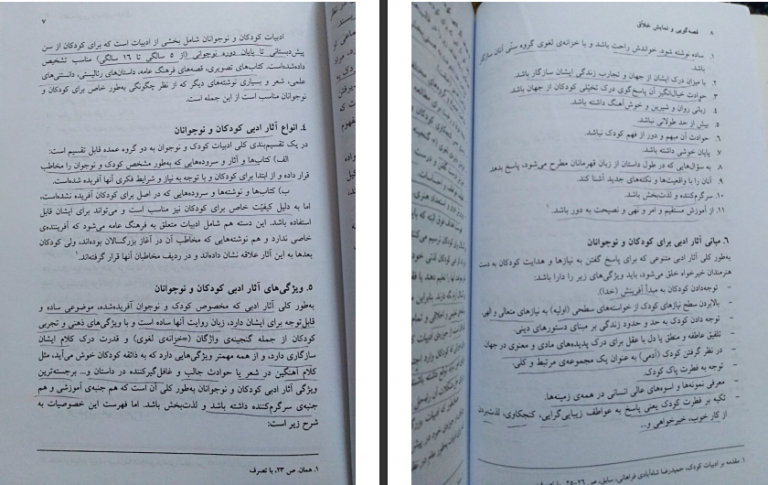 ۷
ادبیات کودکان و نوجوانان شامل بخشی از ادبیات است که برای کودکان از سن
پیش‌دبستانی تا پایان دوره نوجوانی (از ۵ سالگی تا ۱۶ سالگی) مناسب تشخیص
داده‌شده‌است. کتاب‌های تصویری، قصه‌های فرهنگ عامه، داستان‌های رئالیستی، دانستنی‌های
علمی، شعر و بسیاری نوشته‌های دیگر که از نظر چگونگی به‌طور خاص برای کودکان و
نوجوانان مناسب است از این جمله است.
۴. انواع آثار ادبی کودکان و نوجوانان
در یک تقسیم‌بندی کلی ادبیات کودک و نوجوان به دو گروه عمده قابل تقسیم است:
الف) کتاب‌ها و آثار و سروده‌هایی که به‌طور مشخص کودک و نوجوان را مخاطب
قرار داده و از ابتدا برای کودکان و با توجه به نیاز و شرایط فکری آنها آفریده شده‌است.
ب) کتاب‌ها و نوشته‌ها و سروده‌هایی که در اصل برای کودکان آفریده نشده‌است،
اما به دلیل کیفیّت خاص برای کودکان نیز مناسب است و می‌تواند برای ایشان قابل
استفاده باشد. این دسته هم شامل ادبیات متعلق به فرهنگ عامه می‌شود که آفریننده‌ی
خاصی ندارد و هم نوشته‌هایی که مخاطب آن در آغاز بزرگسالان بوده‌اند، ولی کودکان
بعدها به این آثار علاقه نشان داده‌اند و در ردیف مخاطبان آنها قرار گرفته‌اند.۱
۵. ویژگی‌های آثار ادبی کودکان و نوجوانان
به‌طور کلی آثار ادبی که مخصوص کودک و نوجوان آفریده‌شده، موضوعی ساده و
قابل‌توجه برای ایشان دارد، زبان روایت آنها ساده است و با ویژگی‌های ذهنی و تجربی
کودکان از جمله گنجینه‌ی واژگان (=خزانه‌ی لغوی) و قدرت درک کلام ایشان
سازگاری دارد، و از همه مهمتر ویژگی‌هایی دارد که به ذائقه کودکان خوش می‌آید، مثل
کلام آهنگین در شعر یا حوادث جالب و غافل‌گیرکننده در داستان و... برجسته‌ترین
ویژگی آثار ادبی کودکان و نوجوانان به‌طور کلی آن است که هم جنبه‌ی آموزشی و هم
جنبه‌ی سرگرم‌کننده داشته باشد و لذت‌بخش باشد. اما فهرست این خصوصیات به
شرح زیر است:
۱. همان، ص ۲۳، با تصرف
۸ قصه‌گویی و نمایش خلاق
۱. ساده نوشته شود، خواندنش راحت باشد و با خزانه‌ی لغوی گروه سنّی آنان سازگار
باشد.
۲. با میزان درک ایشان از جهان و تجارب زندگی ایشان سازگار باشد.
۳. حوادث خیال‌انگیز آن پاسخ‌گوی درک تخیّلی کودکان از جهان باشد.
۴. زبانی روان و شیرین و خوش‌آهنگ داشته باشد.
۵. بیش از حد طولانی نباشد.
۶. حوادث آن مبهم و دور از فهم کودک نباشد.
۷. پایان خوشی داشته باشد.
۸. به سؤال‌هایی که در طول داستان از زبان قهرمانان مطرح می‌شود، پاسخ بدهد
۹. آنان را با واقعیت‌ها و نکته‌های جدید آشنا کند.
۱۰. سرگرم‌کننده و لذت‌بخش باشد.
۱۱. از آموزش مستقیم و امر و نهی و نصیحت به دور باشد.۱
۶. مبانی آثار ادبی برای کودکان و نوجوانان
به‌طور کلی آثار ادبی متنوعی که برای پاسخ گفتن به نیازها و هدایت کودکان به دست
هنرمندان خیرخواه خلق می‌شود، باید ویژگی‌های زیر را دارا باشد:
- توجه‌دادن کودکان به مبدأ آفرینش (خدا).
- بالابردن سطح نیازهای کودک از خواسته‌های سطحی (اولیه) به نیازهای متعالی و الهی
- توجه دادن کودک به حد و حدود زندگی بر مبنای دستورهای دینی.
- تلفیق عاطفه و منطق یا دل با عقل برای درک پدیده‌های مادی و معنوی در جهان
- در نظر گرفتن کودک (آدمی) به عنوان یک مجموعه‌ی مرتبط و کلی.
- توجه به فطرت پاک کودک
- معرفی نمونه‌ها و اسوه‌های عالی انسانی در همه‌ی زمینه‌ها.
- تکیه بر فطرت کودک یعنی پاسخ به عواطف زیبایی‌گرایی، کنجکاوی، لذت‌بردن
از کار خوب، خیرخواهی و...
۱. مقدمه بر ادبیات کودک، حمیدرضا شاه‌آبادی فراهانی، سابق، ص